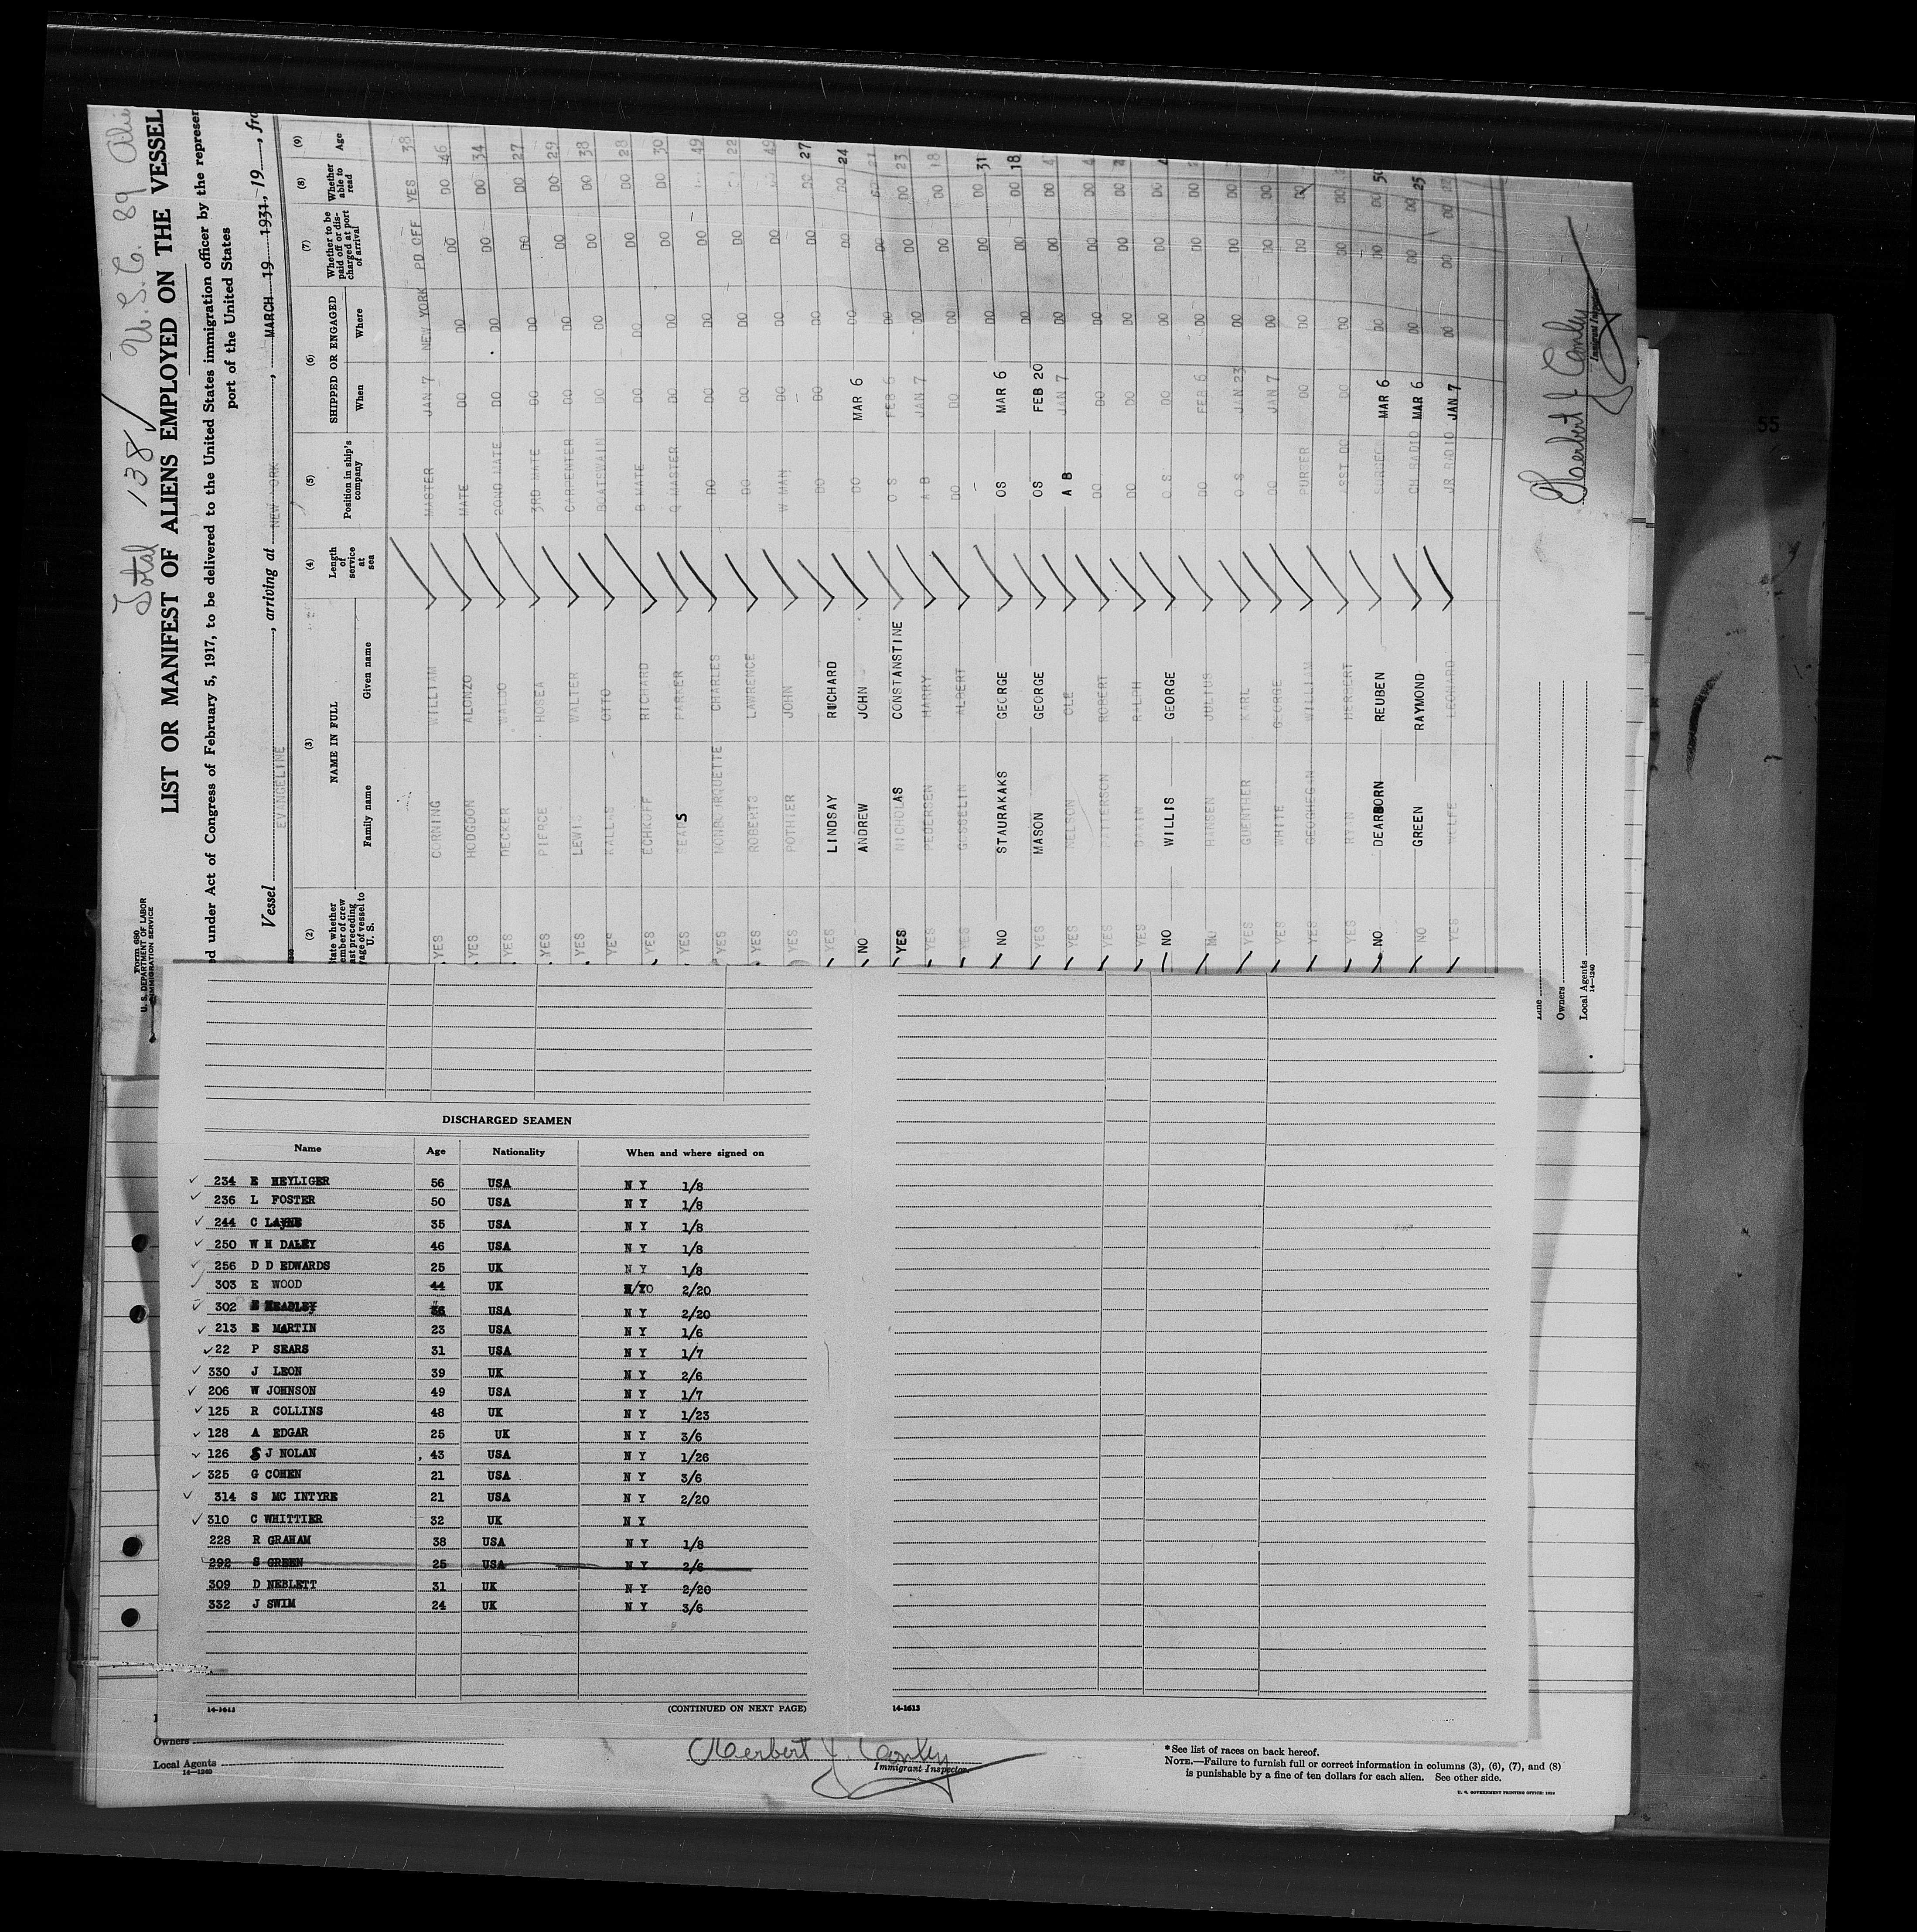 Total 138 / U.S.C. 89
Form 680
U. S. DEPARTMENT OF LABOR
IMMIGRATION SERVICE
LIST OR MANIFEST OF ALIENS EMPLOYED ON THE VESSEL
ed under Act of Congress of February 5, 1917, to be delivered to the United States immigration officer by the represen
port of the United States
Vessel EVANGELINE , arriving at NEW YORK , MARCH 19 1931, 19 , fro
(2) (3) (4) (5) (6) (7) (8) (9)
State whether member of crew last preceding voyage of vessel to U. S.
NAME IN FULL
Family name Given name
Length of service at sea
Position in ship's company
SHIPPED OR ENGAGED
When Where
Whether to be paid off or discharged at port of arrival
Whether able to read
Age
YES CORNING WILLIAM MASTER JAN 7 NEW YORK PD OFF YES 38
YES HODGDON ALONZO MATE DO DO DO DO 46
YES DECKER WALDO 2OND MATE DO DO DO DO 34
YES PIERCE HOSEA 3RD MATE DO DO DO DO 27
YES LEWIS WALTER CARPENTER DO DO DO DO 29
YES KALLAS OTTO BOATSWAIN DO DO DO DO 38
YES ECHKOFF RICHARD B MATE DO DO DO DO 28
YES SEARS PARKER Q MASTER DO DO DO DO 30
YES MONBOURQUETTE CHARLES DO DO DO DO 49
YES ROBERTS LAWRENCE DO DO DO DO 22
YES POTHIER JOHN W MAN DO DO DO 49
YES LINDSAY RICHARD DO DO DO DO DO 27
NO ANDREW JOHN DO MAR 6 DO DO DO 24
YES NICHOLAS CONSTANSTINE O S FEB 6 DO DO DO 21
YES PEDERSEN HARRY A B JAN 7 DO DO DO 23
YES GOSSELIN ALBERT DO DO DO DO DO 18
NO STAURAKAKS GEORGE OS MAR 6 DO DO DO 31
YES MASON GEORGE OS FEB 20 DO DO DO 18
YES NELSON OLE A B JAN 7 DO DO DO
YES PATTERSON ROBERT DO DO DO DO DO
YES RALPH DO DO DO DO DO
NO WILLIS GEORGE O S DO DO DO DO
NO HANSEN JULIUS DO FEB 6 DO DO DO
YES GUENTHER KARL O S JAN 23 DO DO DO
YES WHITE GEORGE DO JAN 7 DO DO DO
YES GEOGHEGAN WILLIAM PURSER DO DO DO DO
YES RYAN HERBERT ASST DO DO DO DO DO
NO DEARBORN REUBEN SURGEON MAR 6 DO DO DO 50
NO GREEN RAYMOND CH RADIO MAR 6 DO DO DO 25
YES WOLFE LEONARD JR RADIO JAN 7 DO DO DO
Line
Owners
Local Agents
14-1240
Herbert J. Conley
Immigrant Inspector.
55
DISCHARGED SEAMEN
Name Age Nationality When and where signed on
234 E HEYLIGER 56 USA N Y 1/8
236 L FOSTER 50 USA N Y 1/8
244 C LAYNE 35 USA N Y 1/8
250 W H DALEY 46 USA N Y 1/8
256 D D EDWARDS 25 UK N Y 1/8
303 E WOOD 44 UK N/YO 2/20
302 E HEADLEY 36 USA N Y 2/20
213 E MARTIN 23 USA N Y 1/6
22 P SEARS 31 USA N Y 1/7
330 J LEON 39 UK N Y 2/6
206 W JOHNSON 49 USA N Y 1/7
125 R COLLINS 48 UK N Y 1/23
128 A EDGAR 25 UK N Y 3/6
126 S J NOLAN 43 USA N Y 1/26
325 G COHEN 21 USA N Y 3/6
314 S MC INTYRE 21 USA N Y 2/20
310 C WHITTIER 32 UK N Y
228 R GRAHAM 38 USA N Y 1/8
292 S GREEN 25 USA N Y 2/6
309 D NEBLETT 31 UK N Y 2/20
332 J SWIM 24 UK N Y 3/6
14-1613 (CONTINUED ON NEXT PAGE)
14-1613
Owners
Local Agents
14-1240
Herbert J. Conley
Immigrant Inspector.
*See list of races on back hereof.
NOTE.—Failure to furnish full or correct information in columns (3), (6), (7), and (8)
is punishable by a fine of ten dollars for each alien. See other side.
U. S. GOVERNMENT PRINTING OFFICE: 1924